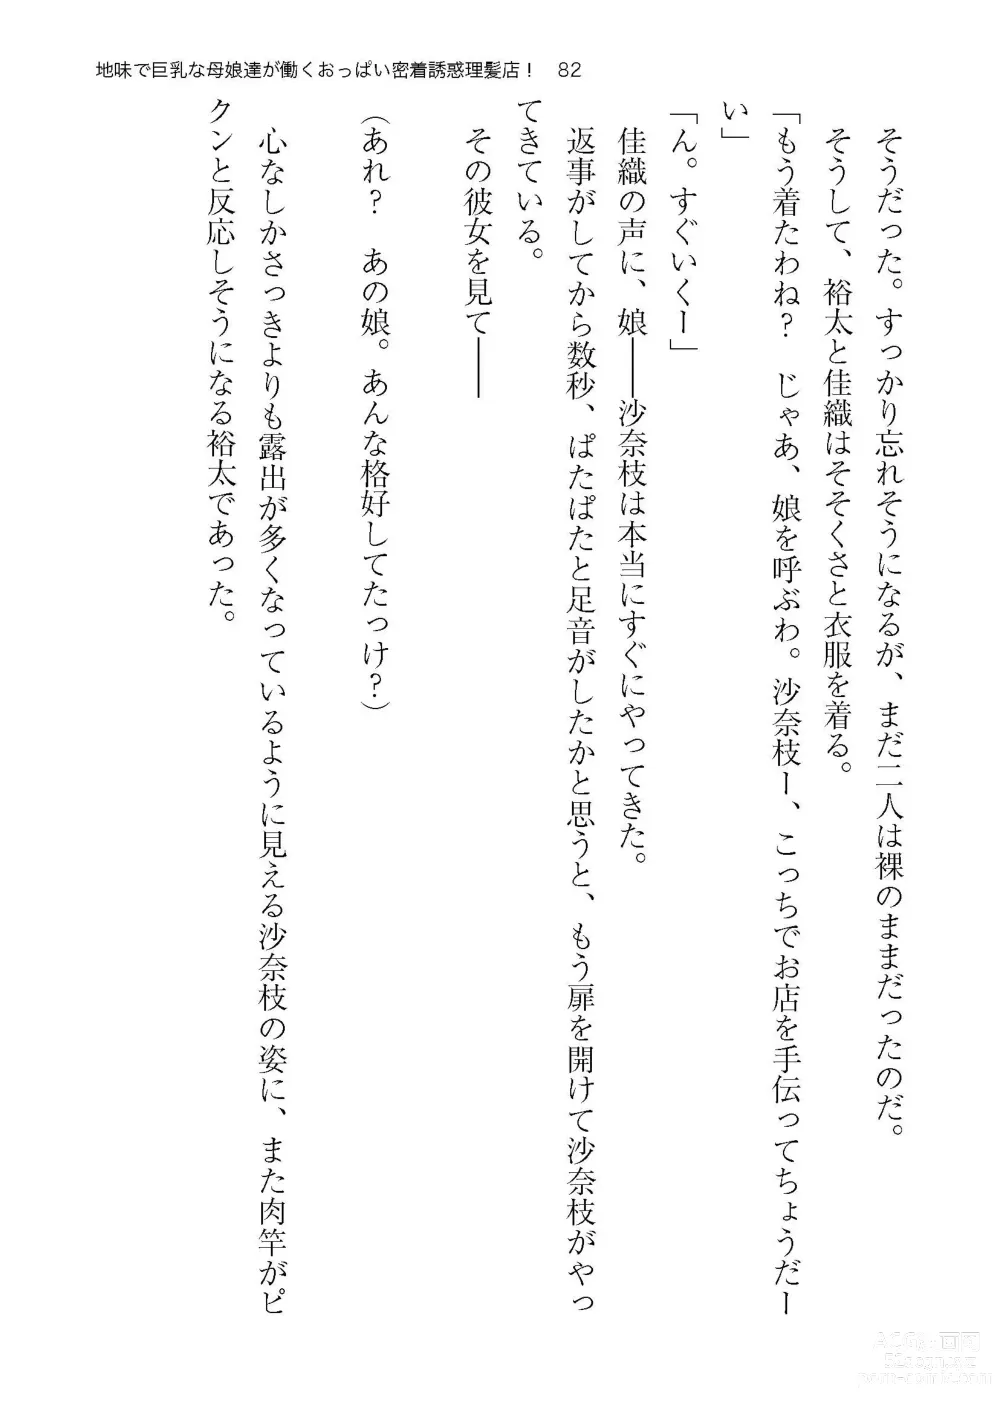 地味で巨乳な母娘達が働くおっぱい密着誘惑理髪店！　82
　そうだった。すっかり忘れそうになるが、まだ二人は裸のままだったのだ。
　そうして、裕太と佳織はそそくさと衣服を着る。
「もう着たわね？　じゃあ、娘を呼ぶわ。沙奈枝ー、こっちでお店を手伝ってちょうだー
い」
「ん。すぐいくー」
　佳織の声に、娘――沙奈枝は本当にすぐにやってきた。
　返事がしてから数秒、ぱたぱたと足音がしたかと思うと、もう扉を開けて沙奈枝がやっ
てきている。
　その彼女を見て――
（あれ？　あの娘。あんな格好してたっけ？）
　心なしかさっきよりも露出が多くなっているように見える沙奈枝の姿に、また肉竿がピ
クンと反応しそうになる裕太であった。